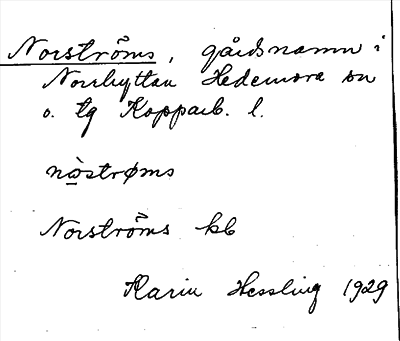 Norströms, gårdsnamn i
Norrhyttan Hedemora sn
o. tg Kopparb. l.
nòstrøms
Norströms kb
Karin Hessling 1929